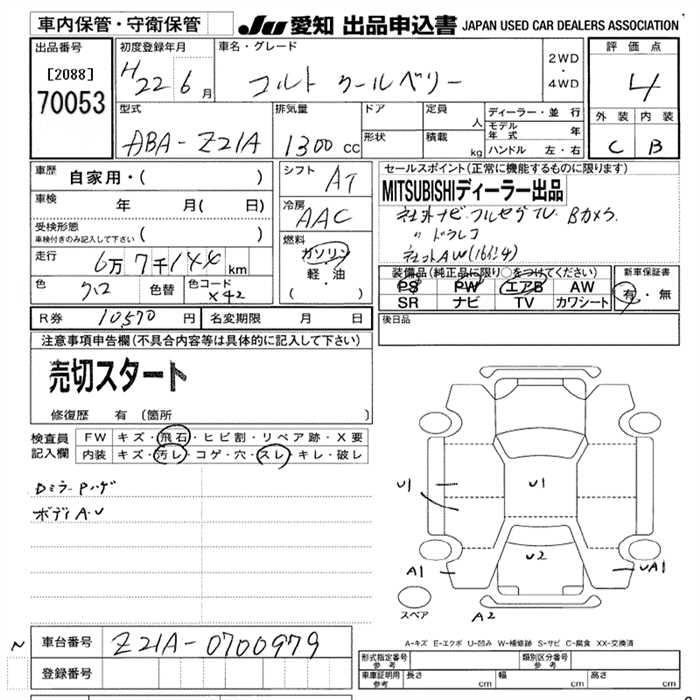 車内保管・守衛保管 JU 愛知 出品申込書 JAPAN USED CAR DEALERS ASSOCIATION
出品番号
[2088]
70053
初度登録年月
H22 6月
車名・グレード
コルト クールベリー
2WD
・
4WD
評価点
4
型式
ABA-Z21A
排気量
1300 cc
ドア
形状
定員
人
積載
kg
ディーラー・並行
モデル年式 年
ハンドル 左・右
外装 内装
C B
車歴
自家用・( )
車検
年 月( 日)
受検形態
車検付きのみ記入して下さい ( )
走行
6万7千144 km
色
クロ
色替
色コード
X42
シフト
AT
冷房
AAC
燃料
ガソリン
軽・油
( ・ )
セールスポイント(正常に機能するものに限ります)
MITSUBISHIディーラー出品
社外ナビ フルセグTV Bカメラ
〃 ドラレコ
社外AW(16インチ)
装備品(純正品に限り○をつけてください)
PS PW エアB AW
SR ナビ TV カワシート
新車保証書
有・無
R券 10,570 円
名変期限 月 日
後日品
注意事項申告欄(不具合内容等は具体的に記入して下さい)
売切スタート
修復歴 有(箇所 )
検査員
記入欄
FW キズ・飛石・ヒビ割・リペア跡・X要
内装 キズ・汚レ・コゲ・穴・スレ・キレ・破レ
Dミラーアハゲ
ボディA・U
U1
U1
U2
A1
UA1
スペア
A2
A-キズ E-エクボ U-凹み W-補修跡 S-サビ C-腐食 XX-交換済
~
車台番号
Z21A-0700979
登録番号
形式指定番号
参考
類別区分番号
参考
車庫証明用
参考
長さ cm
幅 cm
高さ cm